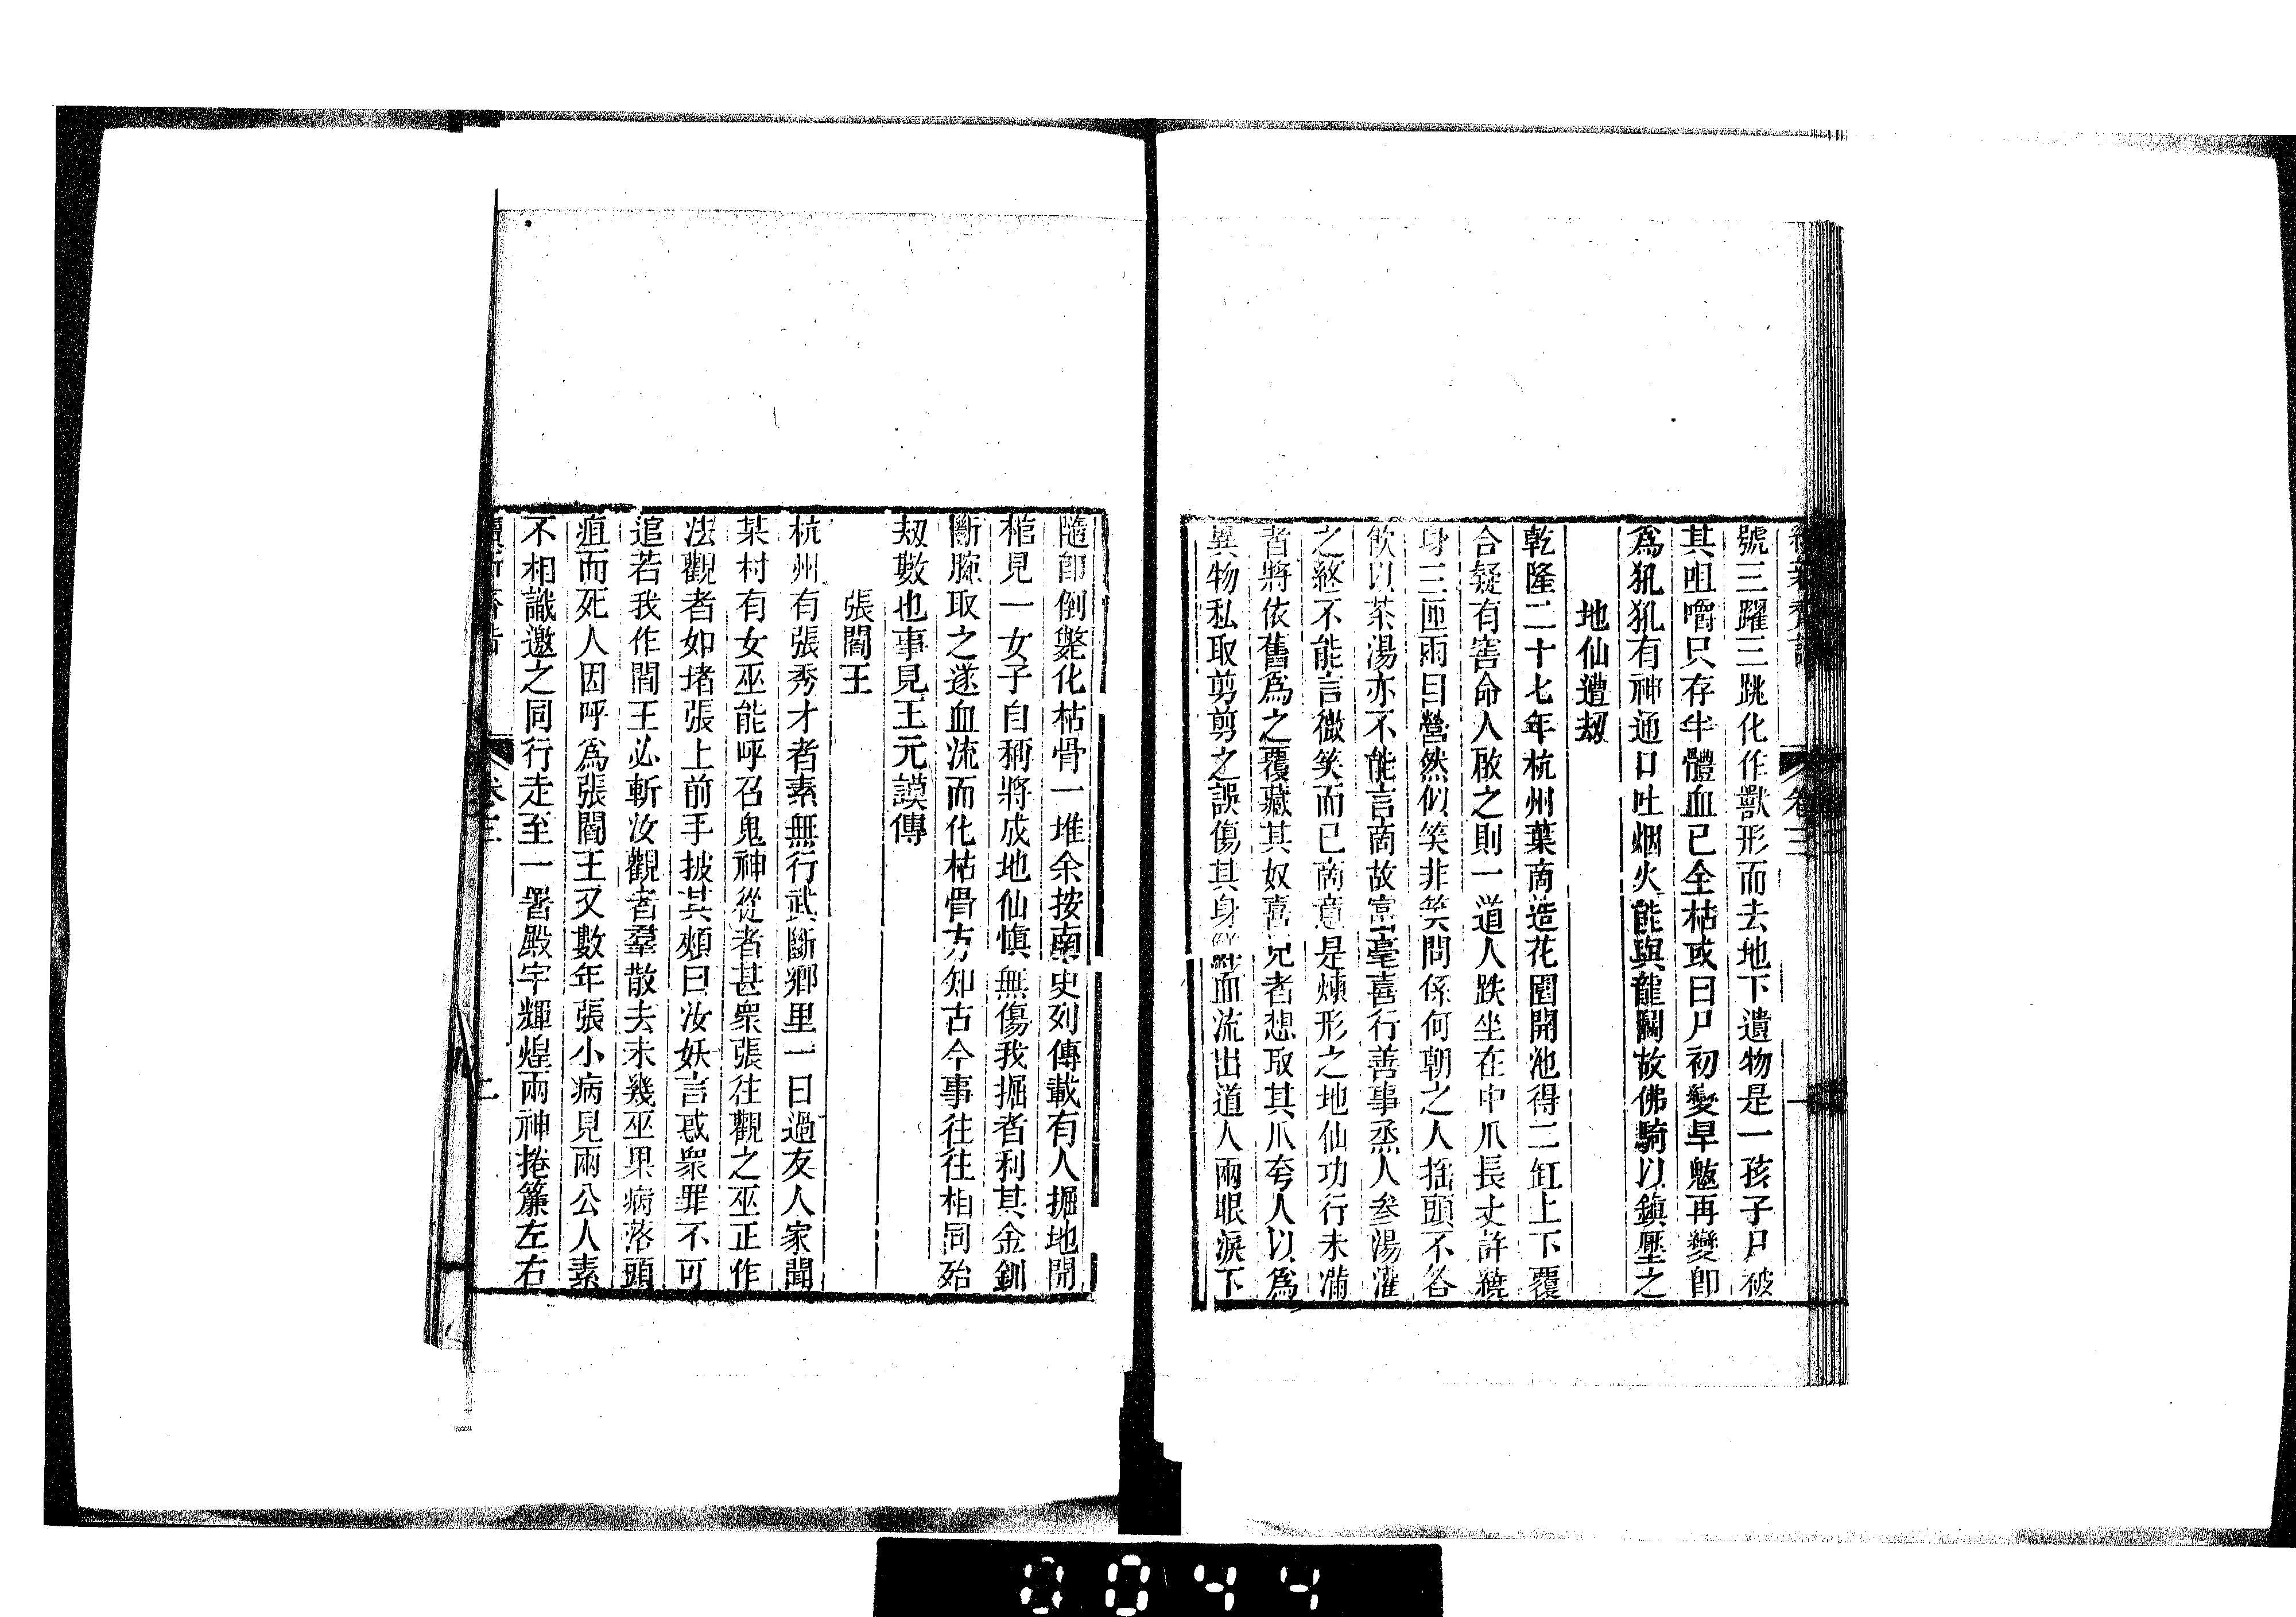 續新齊諧 卷三
號三躍三跳化作獸形而去地下遺物是一孩子尸被
其咀嚼只存半體血已全枯或曰尸初變旱魃再變卽
爲犼犼有神通口吐烟火能與龍鬬故佛騎以鎭壓之
地仙遭刼
乾隆二十七年杭州葉商造花園開池得二缸上下覆
合疑有害命人啟之則一道人趺坐在中爪長丈許繞
身三匝兩目營然似笑非笑問係何朝之人搖頭不答
飲以茶湯亦不能言商故富豪喜行善事烝人參湯灌
之終不能言微笑而已商意是煉形之地仙功行未滿
者將依舊爲之覆藏其奴喜兒者想取其爪夸人以爲
異物私取剪剪之誤傷其身血流出道人兩眼淚下
隨卽倒斃化枯骨一堆余按南史列傳載有人掘地開
棺見一女子自稱將成地仙愼無傷我掘者利其金釧
斷腕取之遂血流而化枯骨方知古今事往往相同殆
刼數也事見王元謨傳
張閻王
杭州有張秀才者素無行武斷鄉里一日過友人家聞
某村有女巫能呼召鬼神從者甚衆張往觀之巫正作
法觀者如堵張上前手披其頰曰汝妖言惑衆罪不可
逭若我作閻王必斬汝觀者羣散去未幾巫果病落頭
疽而死人因呼爲張閻王又數年張小病見兩公人素
不相識邀之同行走至一署殿宇輝煌兩神捲簾左右
續新齊諧 卷三
0044